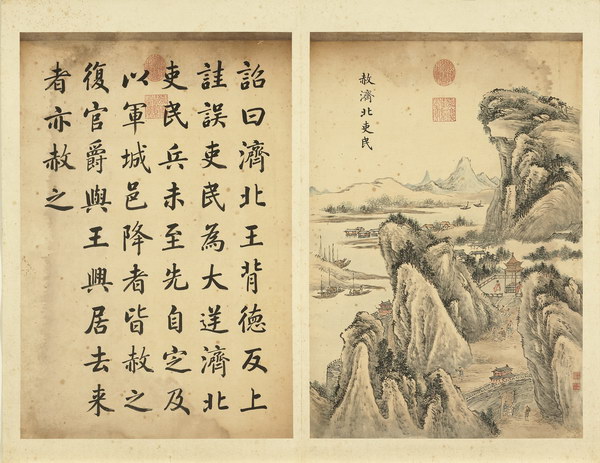 赦濟北吏民
詔曰濟北王背德反上
詿誤吏民為大逆濟北
吏民兵未至先自定及
以軍城邑降者皆赦之
復官爵與王興居去来
者亦赦之